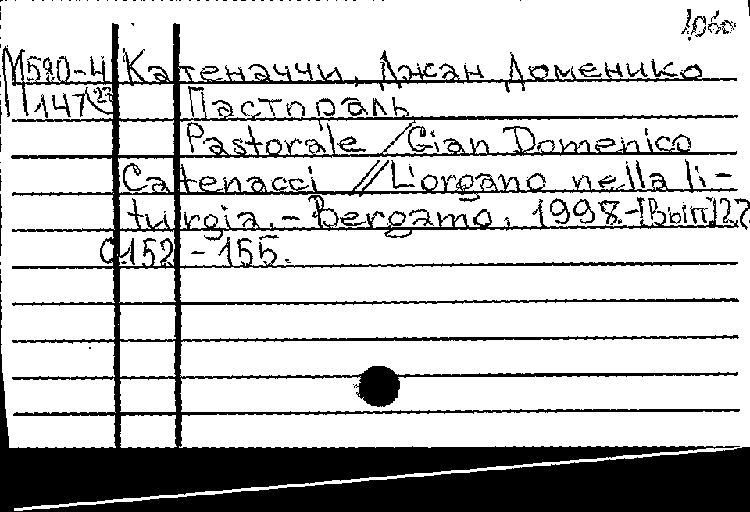 1060
М580-4 Катеначчи, Джан Доменико
П147(23) Пастораль
Pastorale / Gian Domenico
Catenacci // L'organo nella li-
turgia. - Bergamo, 1998.-[Вып]27.
С152 - 155.